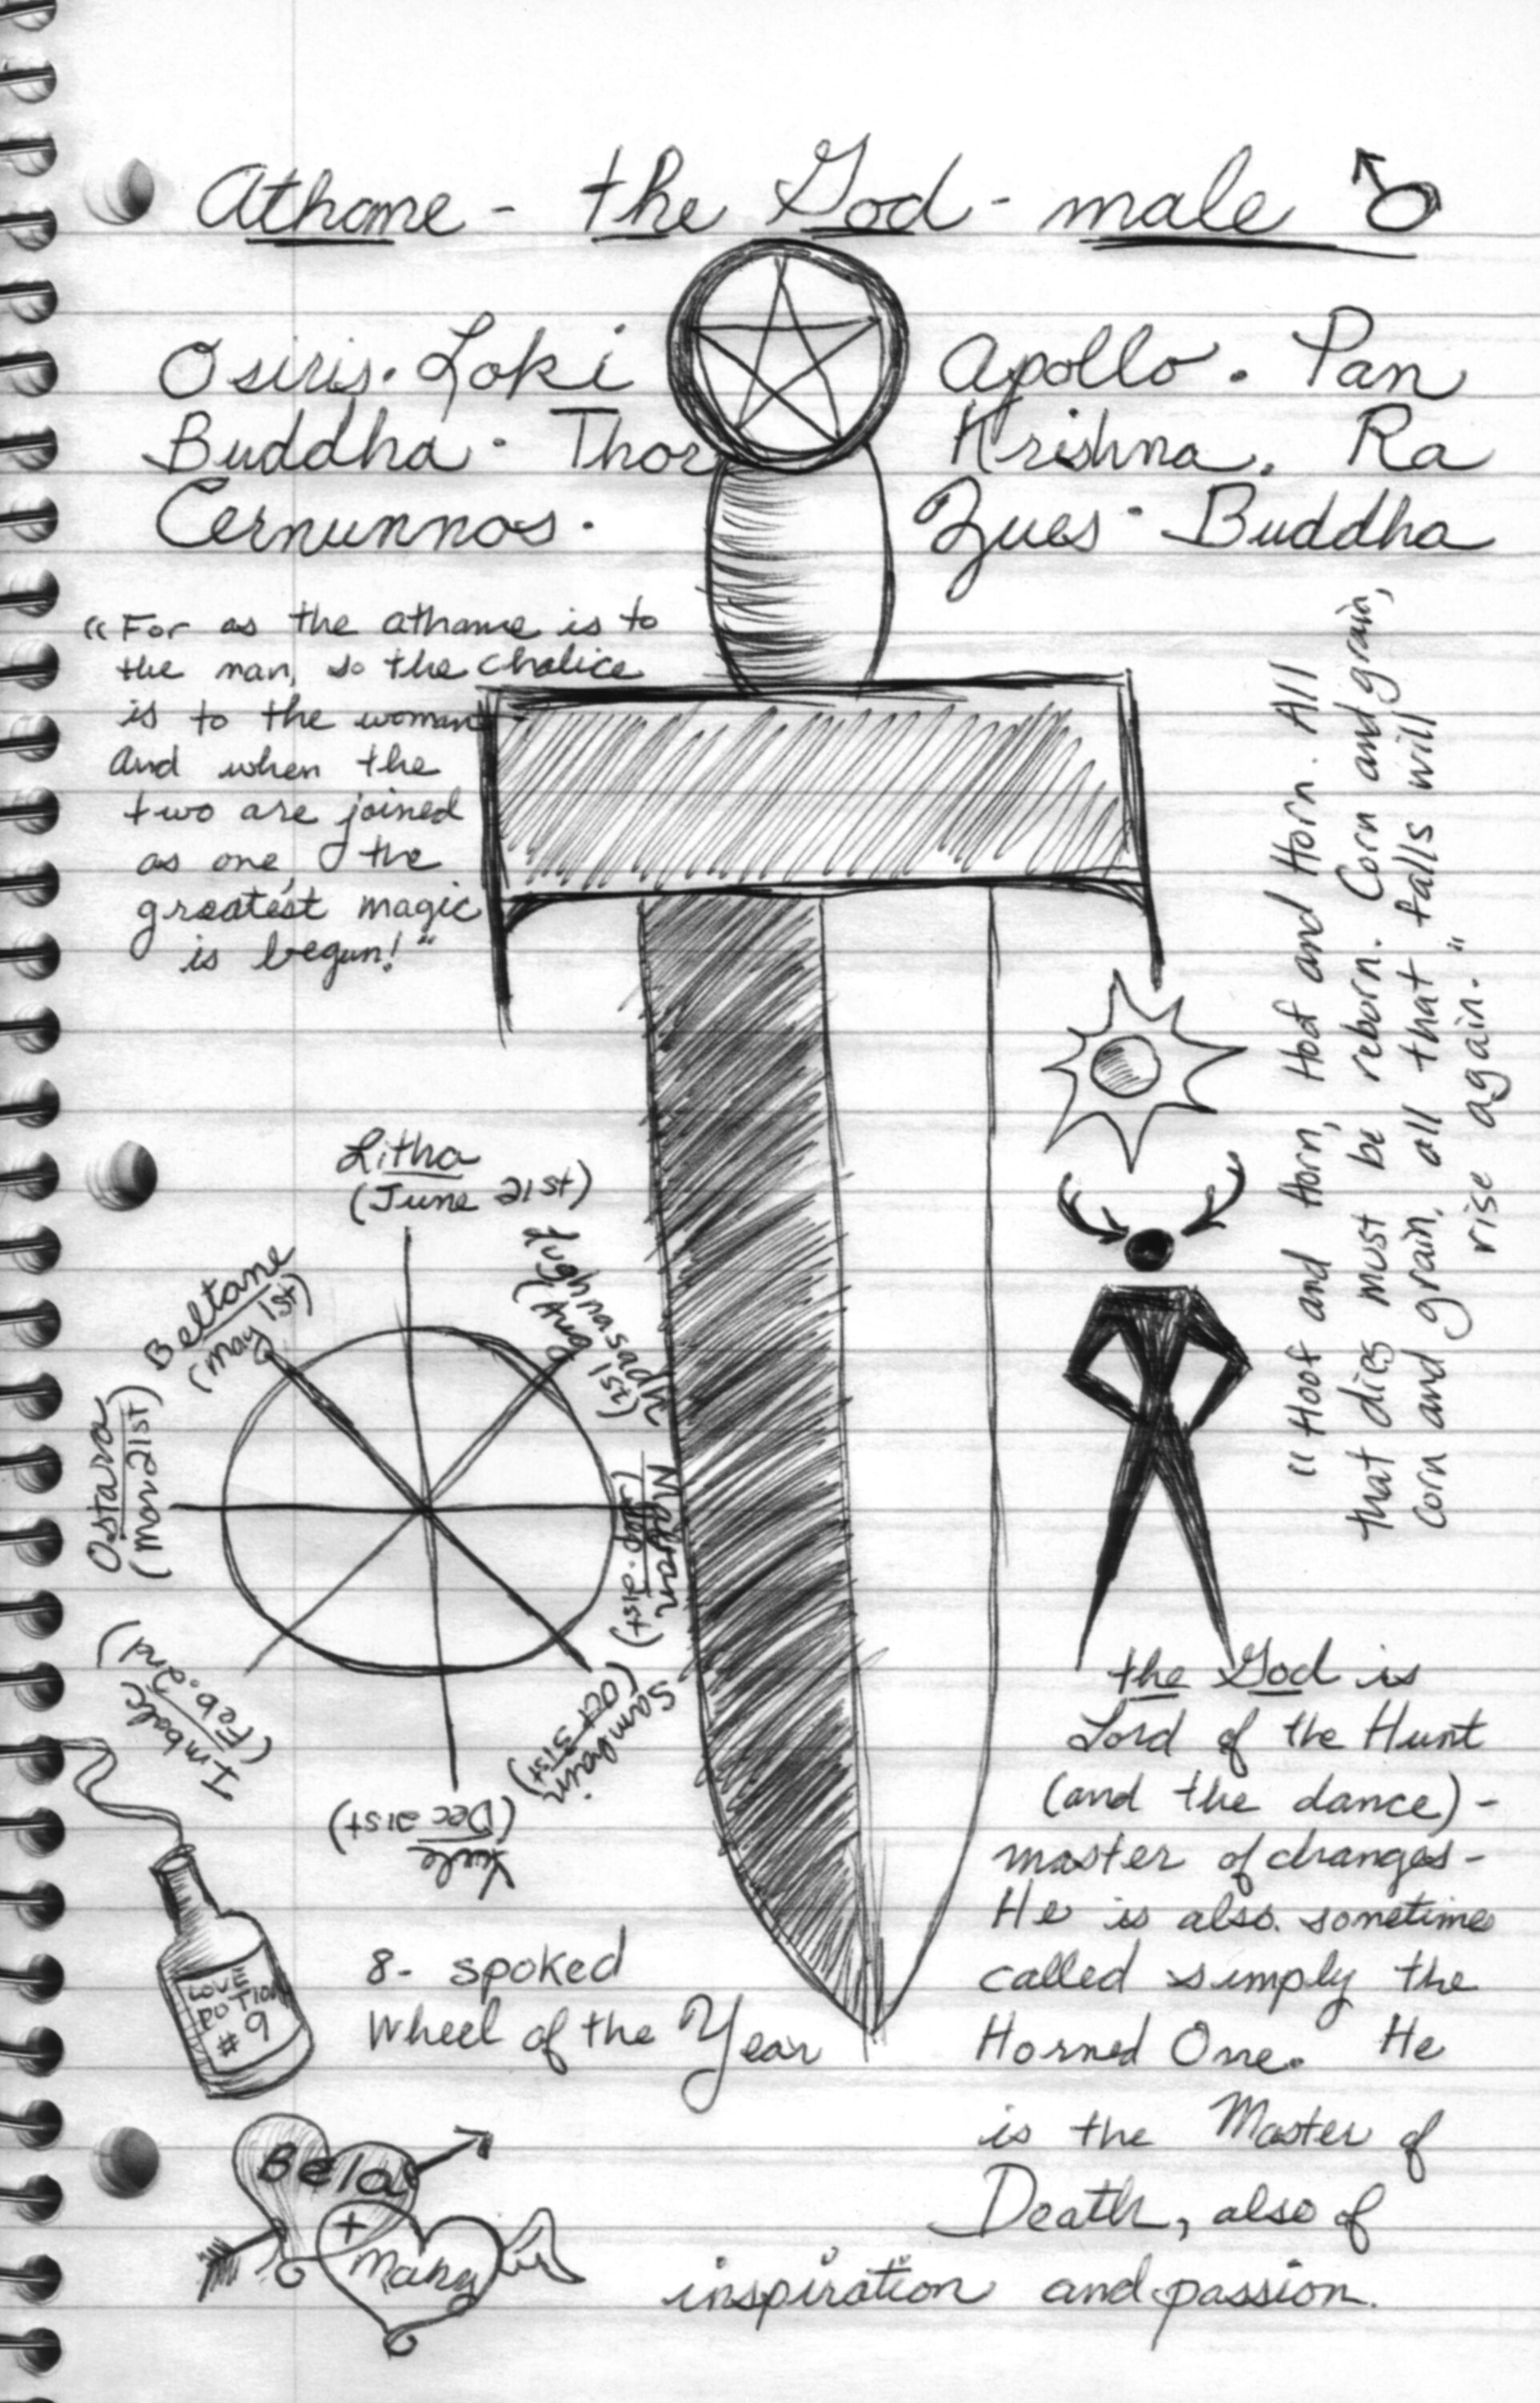 Athame - the God - male ♂
Osiris. Loki
Buddha. Thor
Cernunnos.
Apollo. Pan
Krishna. Ra
Zues. Buddha
"For as the athame is to
the man, so the chalice
is to the woman
And when the
two are joined
as one, the
greatest magic
is begun!"
"Hoof and Horn, Hoof and Horn. All
that dies must be reborn. Corn and grain,
Corn and grain, all that falls will
rise again."
Litha
(June 21st)
Lughnasadh
(Aug 1st)
Mabon
(Sep. 21st)
Samhain
(Oct 31st)
Yule
(Dec 21st)
Imbolc
(Feb. 2nd)
Ostara
(Mar 21st)
Beltane
(May 1st)
8- spoked
Wheel of the Year
LOVE
POTION
#9
Bela
+
Mary
the God is
Lord of the Hunt
(and the dance) -
master of changes -
He is also sometime
called simply the
Horned One. He
is the Master of
Death, also of
inspiration and passion.